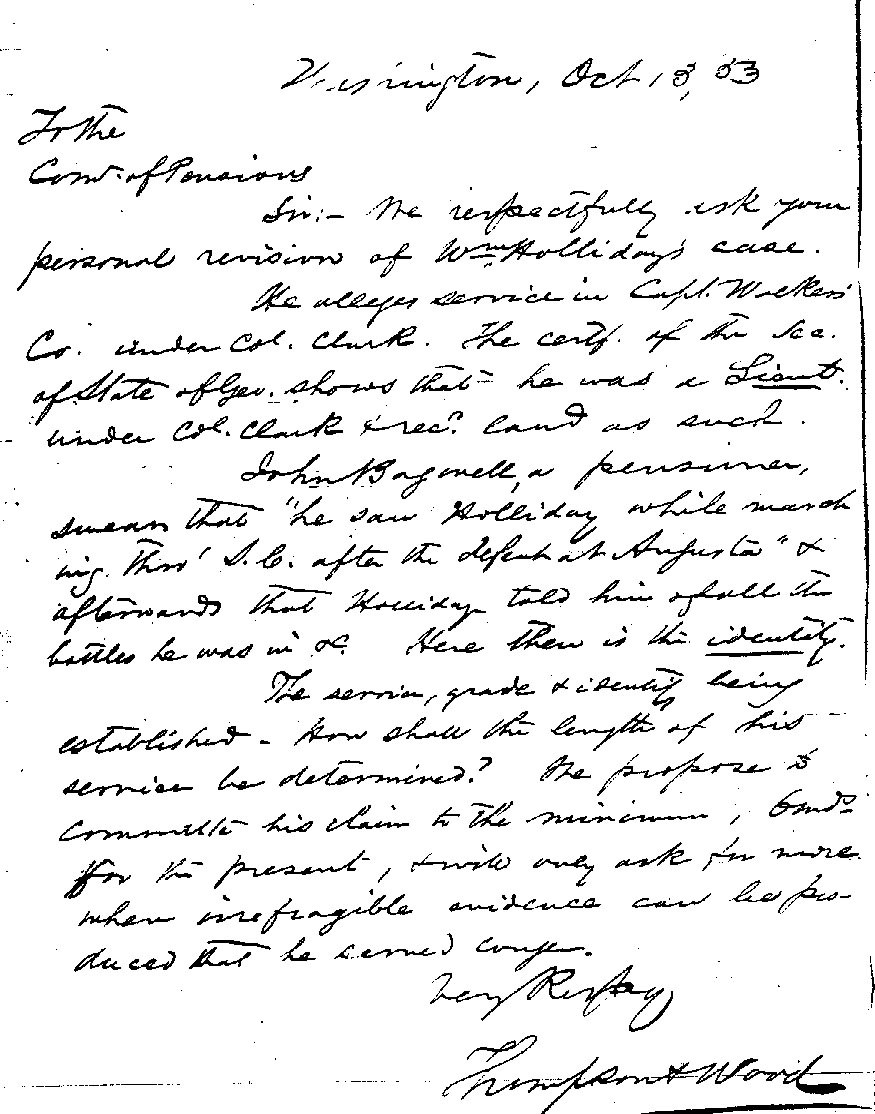 Washington, Oct 13, 53
To the
Comr. of Pensions
Sir:- We respectfully ask your
personal revision of Wm Holliday's case.
He alleges service in Capt. Walkers'
Co. under Col. Clark. The certf. of the Sec.
of State of Geo. shows that he was a Lieut.
under Col. Clark & recd. land as such.
John Bagwell, a pensioner,
swears that "he saw Holliday while march
ing thro' S.C. after the defeat at Augusta" &
afterwards that Holliday told him of all the
battles he was in &c. Here then is the identity.
The service, grade & identity being
established - How shall the length of his
service be determined? We propose to
commute his claim to the minimum, 6 mos
for the present, & will only ask for more
when irrefragible evidence can be pro-
duced that he served longer.
Very Respy
Thompson & Wood